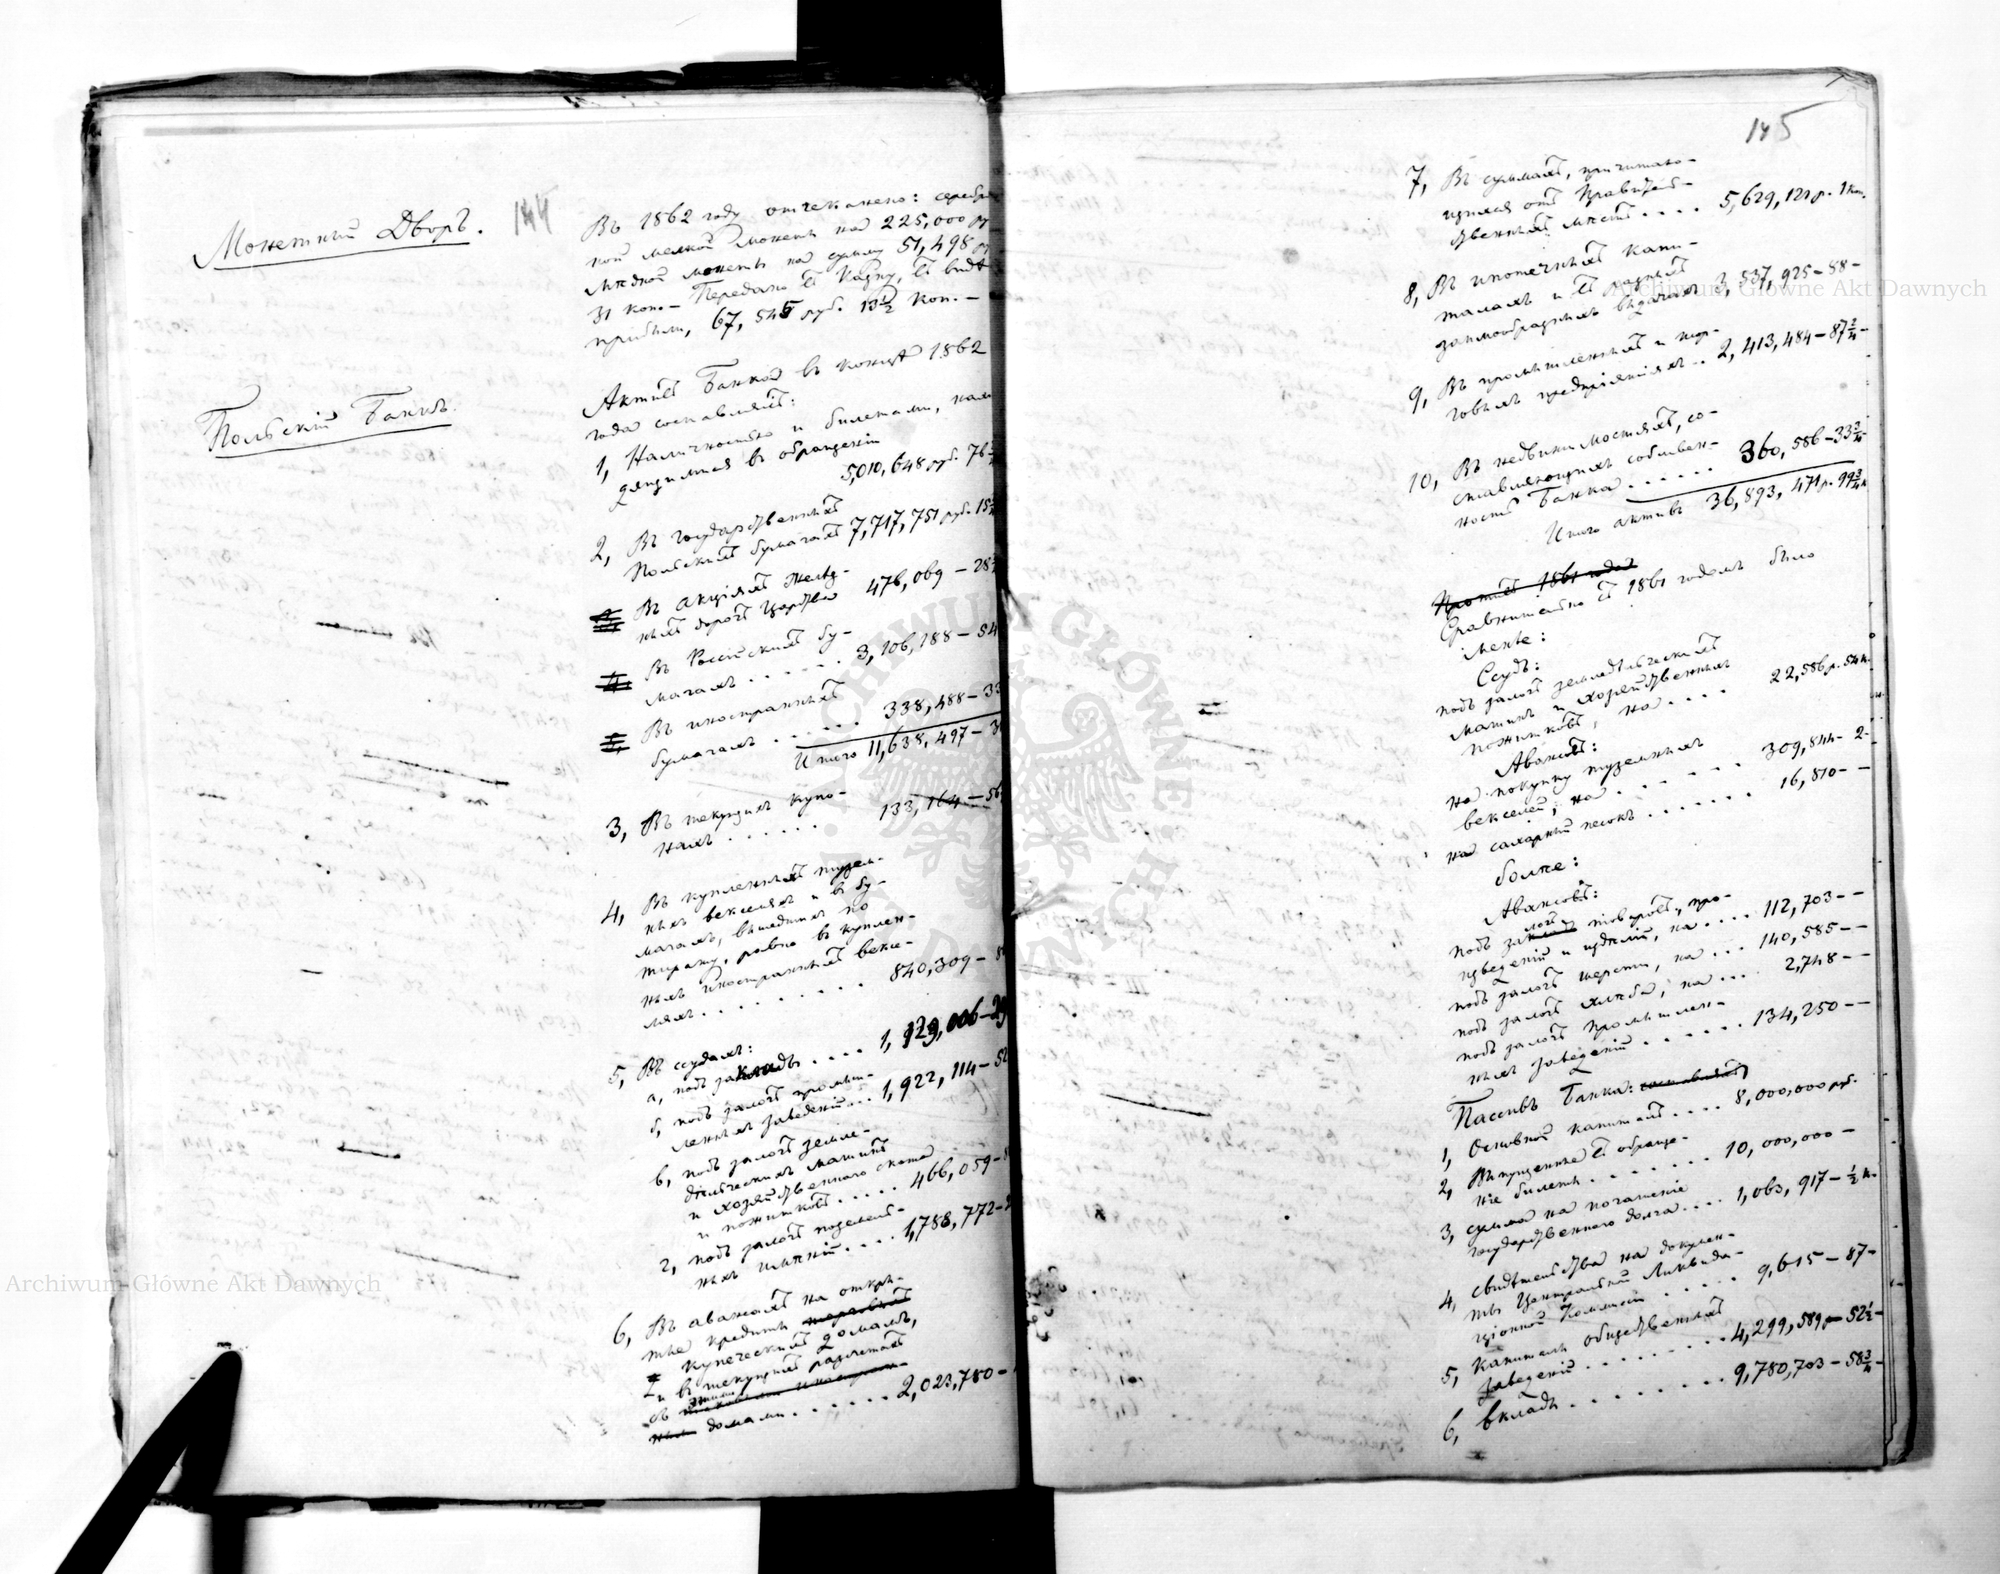 144
Монетный Дворъ.
Въ 1862 году отчеканено: серебрян
ной мелкой монеты на 225,000 ру
мѣдной монеты на сумму 51,498 ру
31 коп.— Передано въ Казну, въ видѣ
прибыли, 67,545 руб. 13½ коп.—
Польскій Банкъ.
Активъ Банка въ концѣ 1862
года составляютъ:
1, Наличностью и билетами, нахо
дящимися въ обращеніи
5,010,648 руб. 76
2, Въ государственныхъ
Польскихъ бумагахъ 7,717,751 руб. 15
Въ акціяхъ желѣз-
ныхъ дорогъ Царства 476,069 — 28
Въ Россійскихъ бу-
магахъ . . . . . 3,106,188 — 54
Въ иностранныхъ
бумагахъ . . . . 338,488 — 33
Итого 11,638,497 — 3
3, Въ текущихъ купо-
нахъ . . . . . . 133,164 — 56
4, Въ купленныхъ тузем-
ныхъ векселяхъ и въ бу-
магахъ, вышедшихъ по
тиражу, равно въ куплен-
ныхъ иностранныхъ вексе-
ляхъ . . . . . . . 840,309 — 8
5, Въ ссудахъ:
а, подъ заклады . . . . 1,129,006 — 29
б, подъ залогъ промыш-
ленныхъ заведеній . . . 1,922,114 — 52
в, подъ залогъ земле-
дѣльческихъ машинъ
и хозяйственнаго скота
и пожитковъ . . . . . 466,059 —
г, подъ залогъ поземель-
ныхъ имѣній . . . . 1,788,772 —
6, Въ авансахъ на откры-
тые кредиты торговыхъ
купеческихъ домамъ,
и въ текущихъ разсчетахъ
съ этими
домами . . . . . . 2,023,780 —
145
7, Въ суммахъ, причитаю-
щихся отъ Правитель-
ственныхъ мѣстъ . . . . 5,629,121 р. 1 коп.
8, Въ ипотечныхъ капи-
талахъ и въ разныхъ
заимообразныхъ выдачахъ 3,537,925 — 88 —
9, Въ промышленныхъ и тор-
говыхъ предпріятіяхъ . . 2,413,484 — 87 2/4 —
10, Въ недвижимостяхъ, со-
ставляющихъ собствен-
ность Банка . . . . . 360,586 — 33 3/4 —
Итого активъ 36,893,471 р. 99 3/4 к
Противъ 1861 года
Сравнительно съ 1861 годомъ было
менѣе:
Ссудъ:
подъ залогъ земледѣльческихъ
машинъ и хозяйственныхъ
пожитковъ, на . . . 22,586 р. 54 к.
Авансовъ:
на покупку туземныхъ
векселей, на . . . . . . 309,844 — 2 —
на сахарный песокъ . . . . . . 16,810 — —
болѣе:
Авансовъ:
подъ залогъ товаровъ, про-
изведеній и издѣлій, на . . . . 112,703 — —
подъ залогъ шерсти, на . . . 140,585 — —
подъ залогъ хлѣба, на . . . 2,748 — —
подъ залогъ промышлен-
ныхъ заведеній . . . . . . 134,250 — —
Пассивъ Банка: составляютъ
1, Основной капиталъ . . . . 8,000,000 руб.
2, Выпущенные въ обраще-
ніе билеты . . . . . . . 10,000,000 —
3, сумма на погашеніе
государственнаго долга . . . . 1,063,917 — ½ к.
4, свидѣтельства на докумен-
ты Центральной Ликвида-
ціонной Коммисіи . . . . . 9,615 — 87 —
5, Капиталы общественныхъ
заведеній . . . . . . . . . 4,299,589 — 52½ —
6, вклады . . . . . . . . . 9,780,703 — 58 3/4 —
Archiwum Główne Akt Dawnych
Archiwum Główne Akt Dawnych
ARCHIWUM GŁÓWNE AKT DAWNYCH